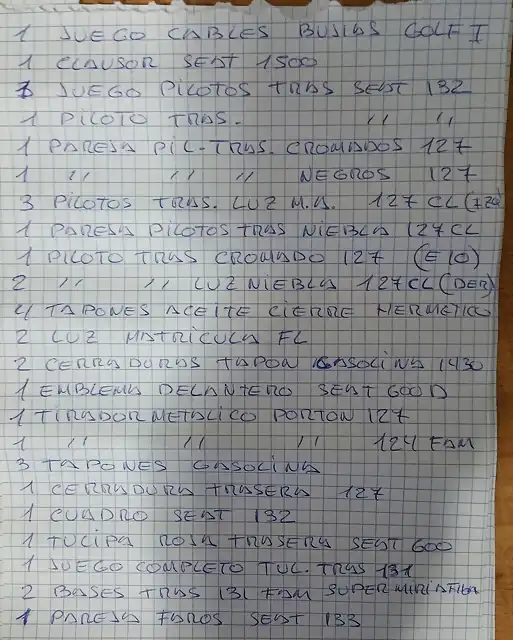 1 JUEGO CABLES BUJIAS GOLF I
1 CLAUSOR SEAT 1500
1 JUEGO PILOTOS TRAS SEAT 132
1 PILOTO TRAS. " "
1 PAREJA PIL-TRAS. CROMADOS 127
1 " " " NEGROS 127
3 PILOTOS TRAS. LUZ M.A. 127 CL
1 PAREJA PILOTOS TRAS NIEBLA 127 CL
1 PILOTO TRAS CROMADO 127 (E IO)
2 " " LUZ NIEBLA 127 CL (DER)
4 TAPONES ACEITE CIERRE HERMETICO
2 LUZ MATRICULA FL
2 CERRADURAS TAPON GASOLINA 1430
1 EMBLEMA DELANTERO SEAT 600 D
1 TIRADOR METALICO PORTON 127
1 " " " 124 FAM
3 TAPONES GASOLINA
1 CERRADURA TRASERA 127
1 CUADRO SEAT 132
1 TULIPA ROJA TRASERA SEAT 600
1 JUEGO COMPLETO TUL. TRAS 131
2 BASES TRAS 131 FAM SUPERMIRIAFIORI
1 PAREJA FAROS SEAT 133